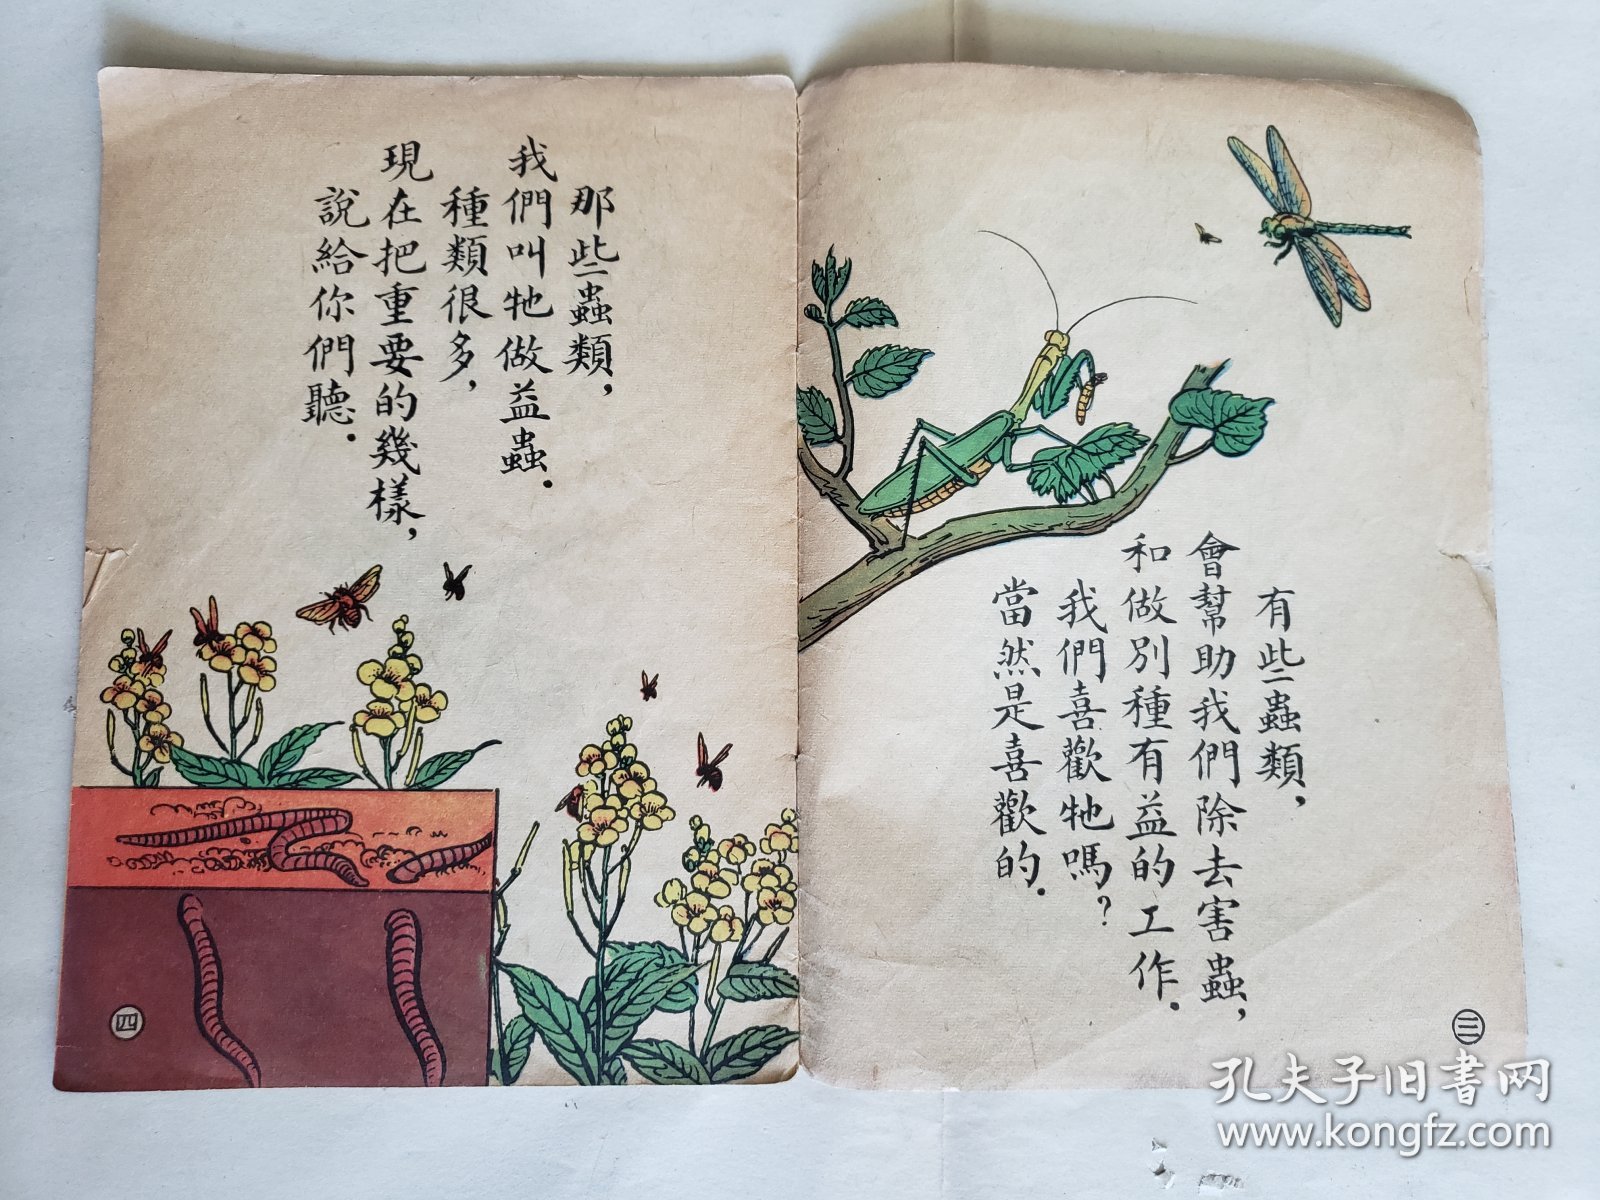 有些蟲類，
會幫助我們除去害蟲，
和做別種有益的工作．
我們喜歡牠嗎？
當然是喜歡的．
三
那些蟲類，
我們叫牠做益蟲．
種類很多，
現在把重要的幾樣，
說給你們聽．
四
孔夫子旧書网
www.kongfz.com